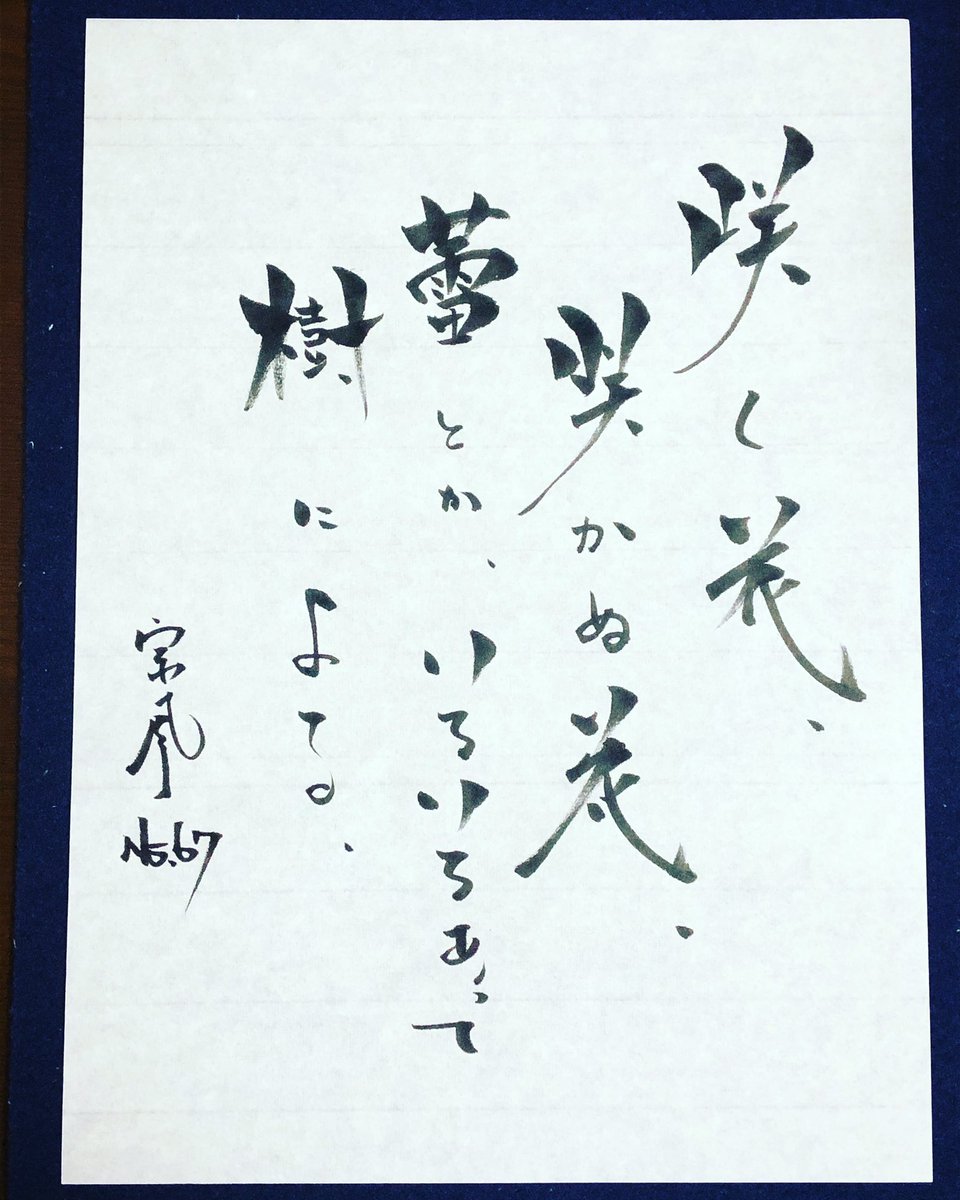 咲く花、
咲かぬ花、
蕾とか、いろいろあって
樹によてる、
宗風
No.67